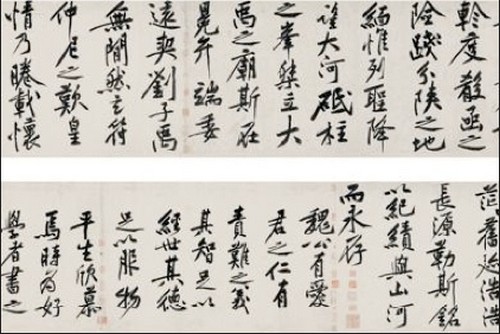 軫度殽函之
險踐分陝之地
緬惟列聖降
望大河砥柱
之峯桀立大
禹之廟斯在
冕弁端委
遠契劉子禹
無閒然玄符
仲尼之歎皇
情乃睠載懷
茫舊跡浩浩
長源勒斯銘
以紀績與山河
而永存
魏公有愛
君之仁有
責難之義
其智足以
經世其德
足以服物
平生欣慕
焉時為好
學者書之